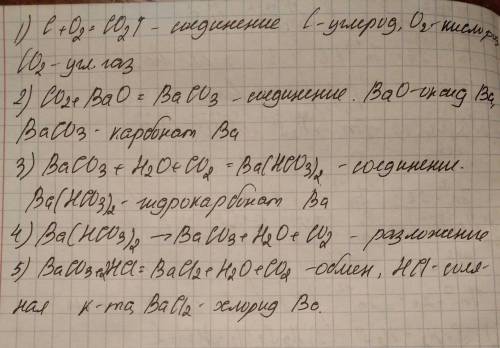 1) C+O2=CO2↑ - соединение C-углерод, O2-кислород,
CO2-угл. газ
2) CO2+BaO=BaCO3 - соединение. BaO-оксид Ba,
BaCO3-карбонат Ba
3) BaCO3+H2O+CO2=Ba(HCO3)2 - соединение.
Ba(HCO3)2-гидрокарбонат Ba
4) Ba(HCO3)2→BaCO3+H2O+CO2 - разложение
5) BaCO3+2HCl=BaCl2+H2O+CO2 -обмен, HCl-соля-
ная к-та, BaCl2-хлорид Ba.